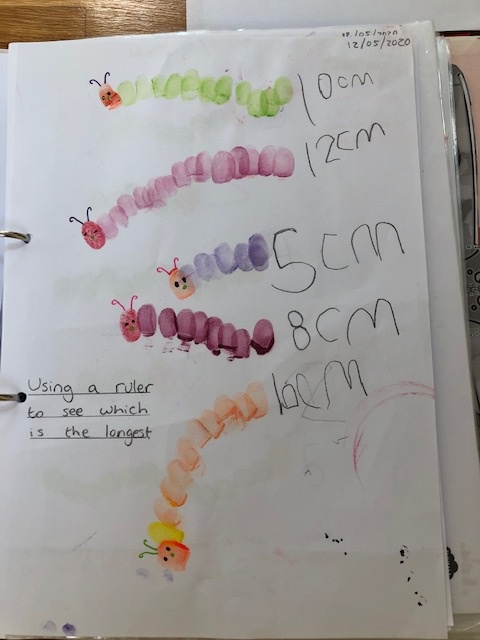 12/05/2020
10cm
12cm
5cm
8cm
10cm
Using a ruler
to see which
is the longest